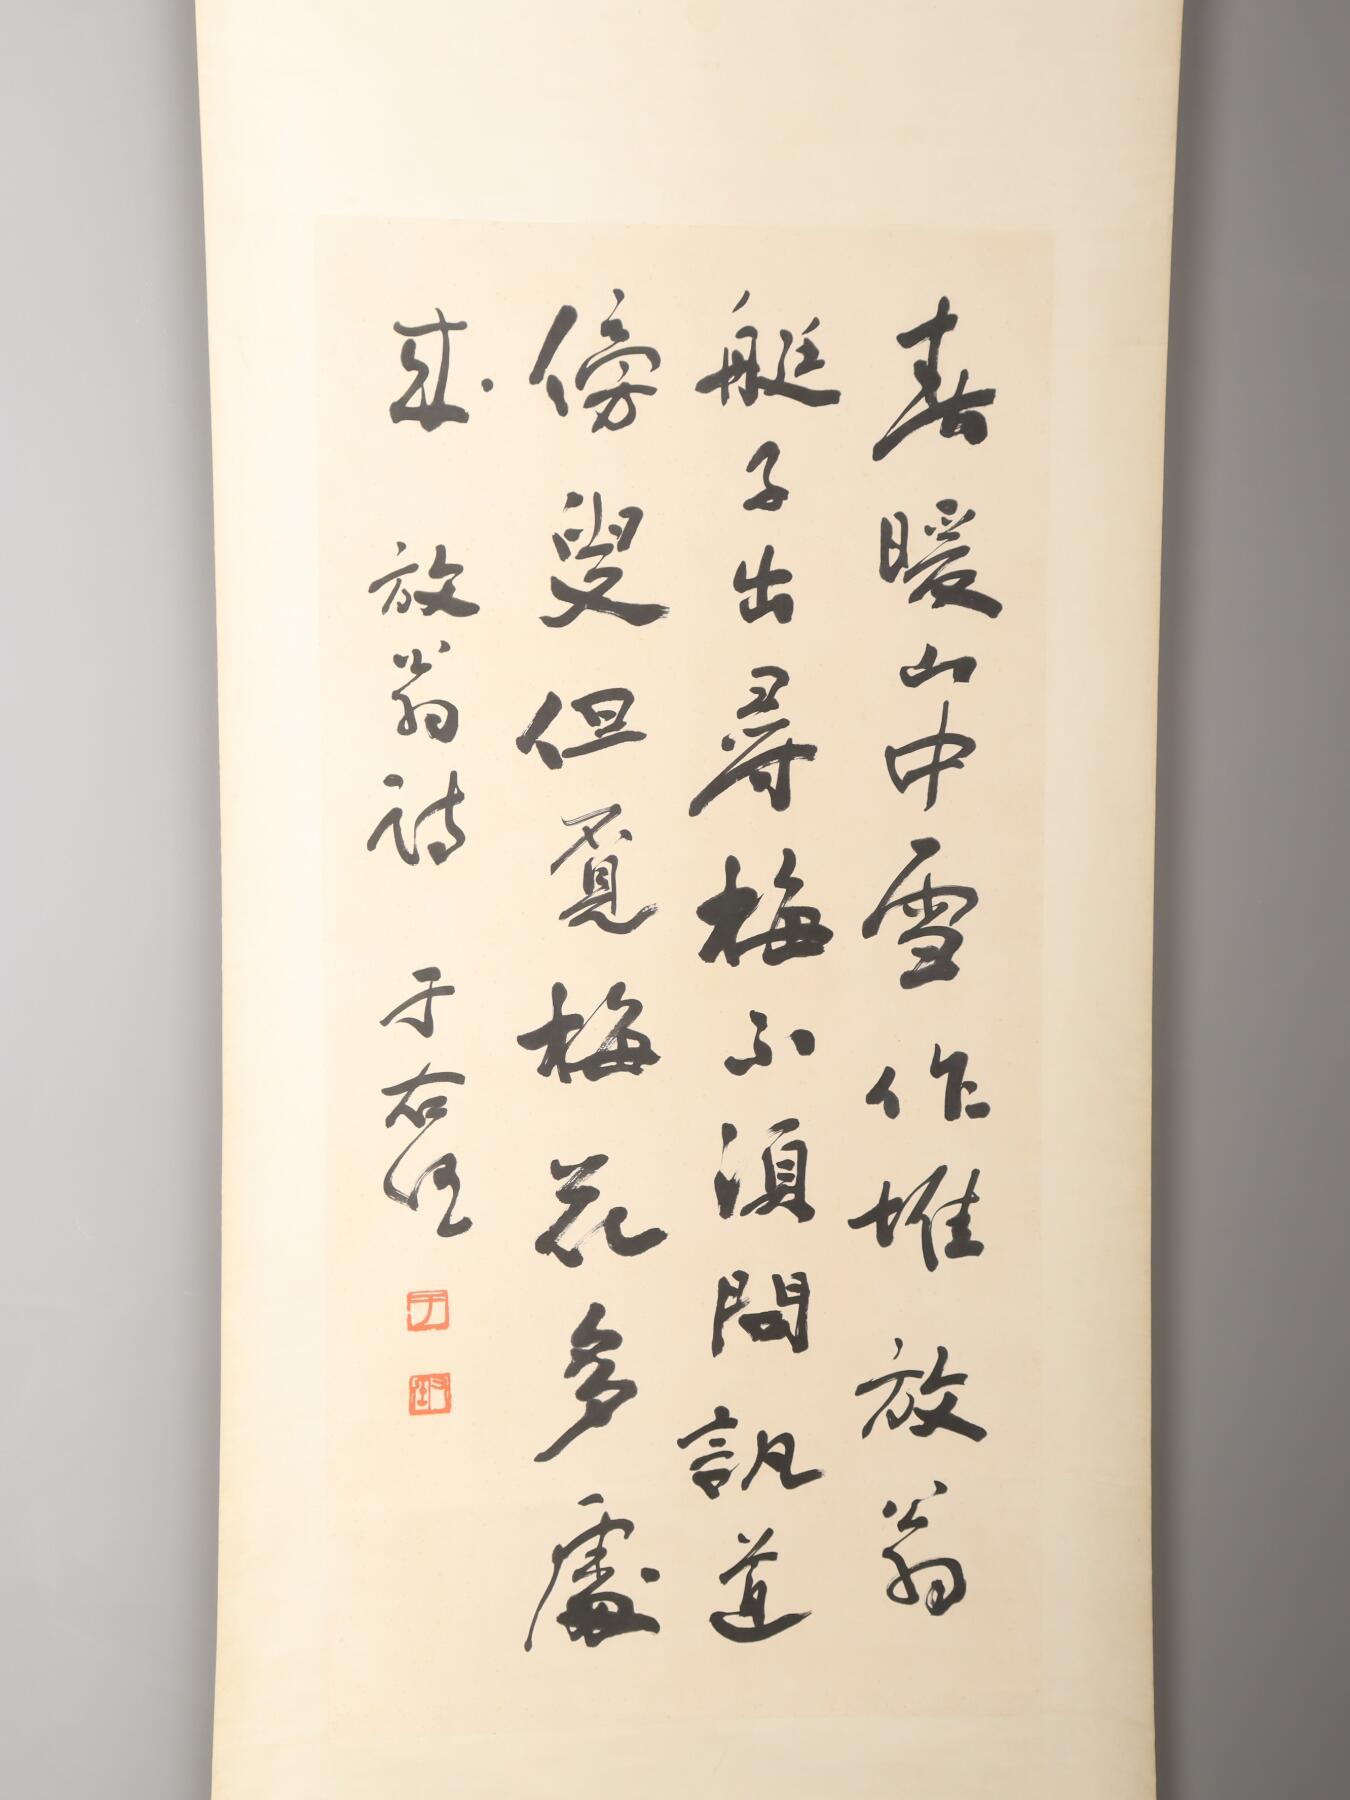 春暖山中雪作堆放翁
艇子出尋梅不須問訊道
傍叟但覓梅花多處
來 放翁詩 于右任
于